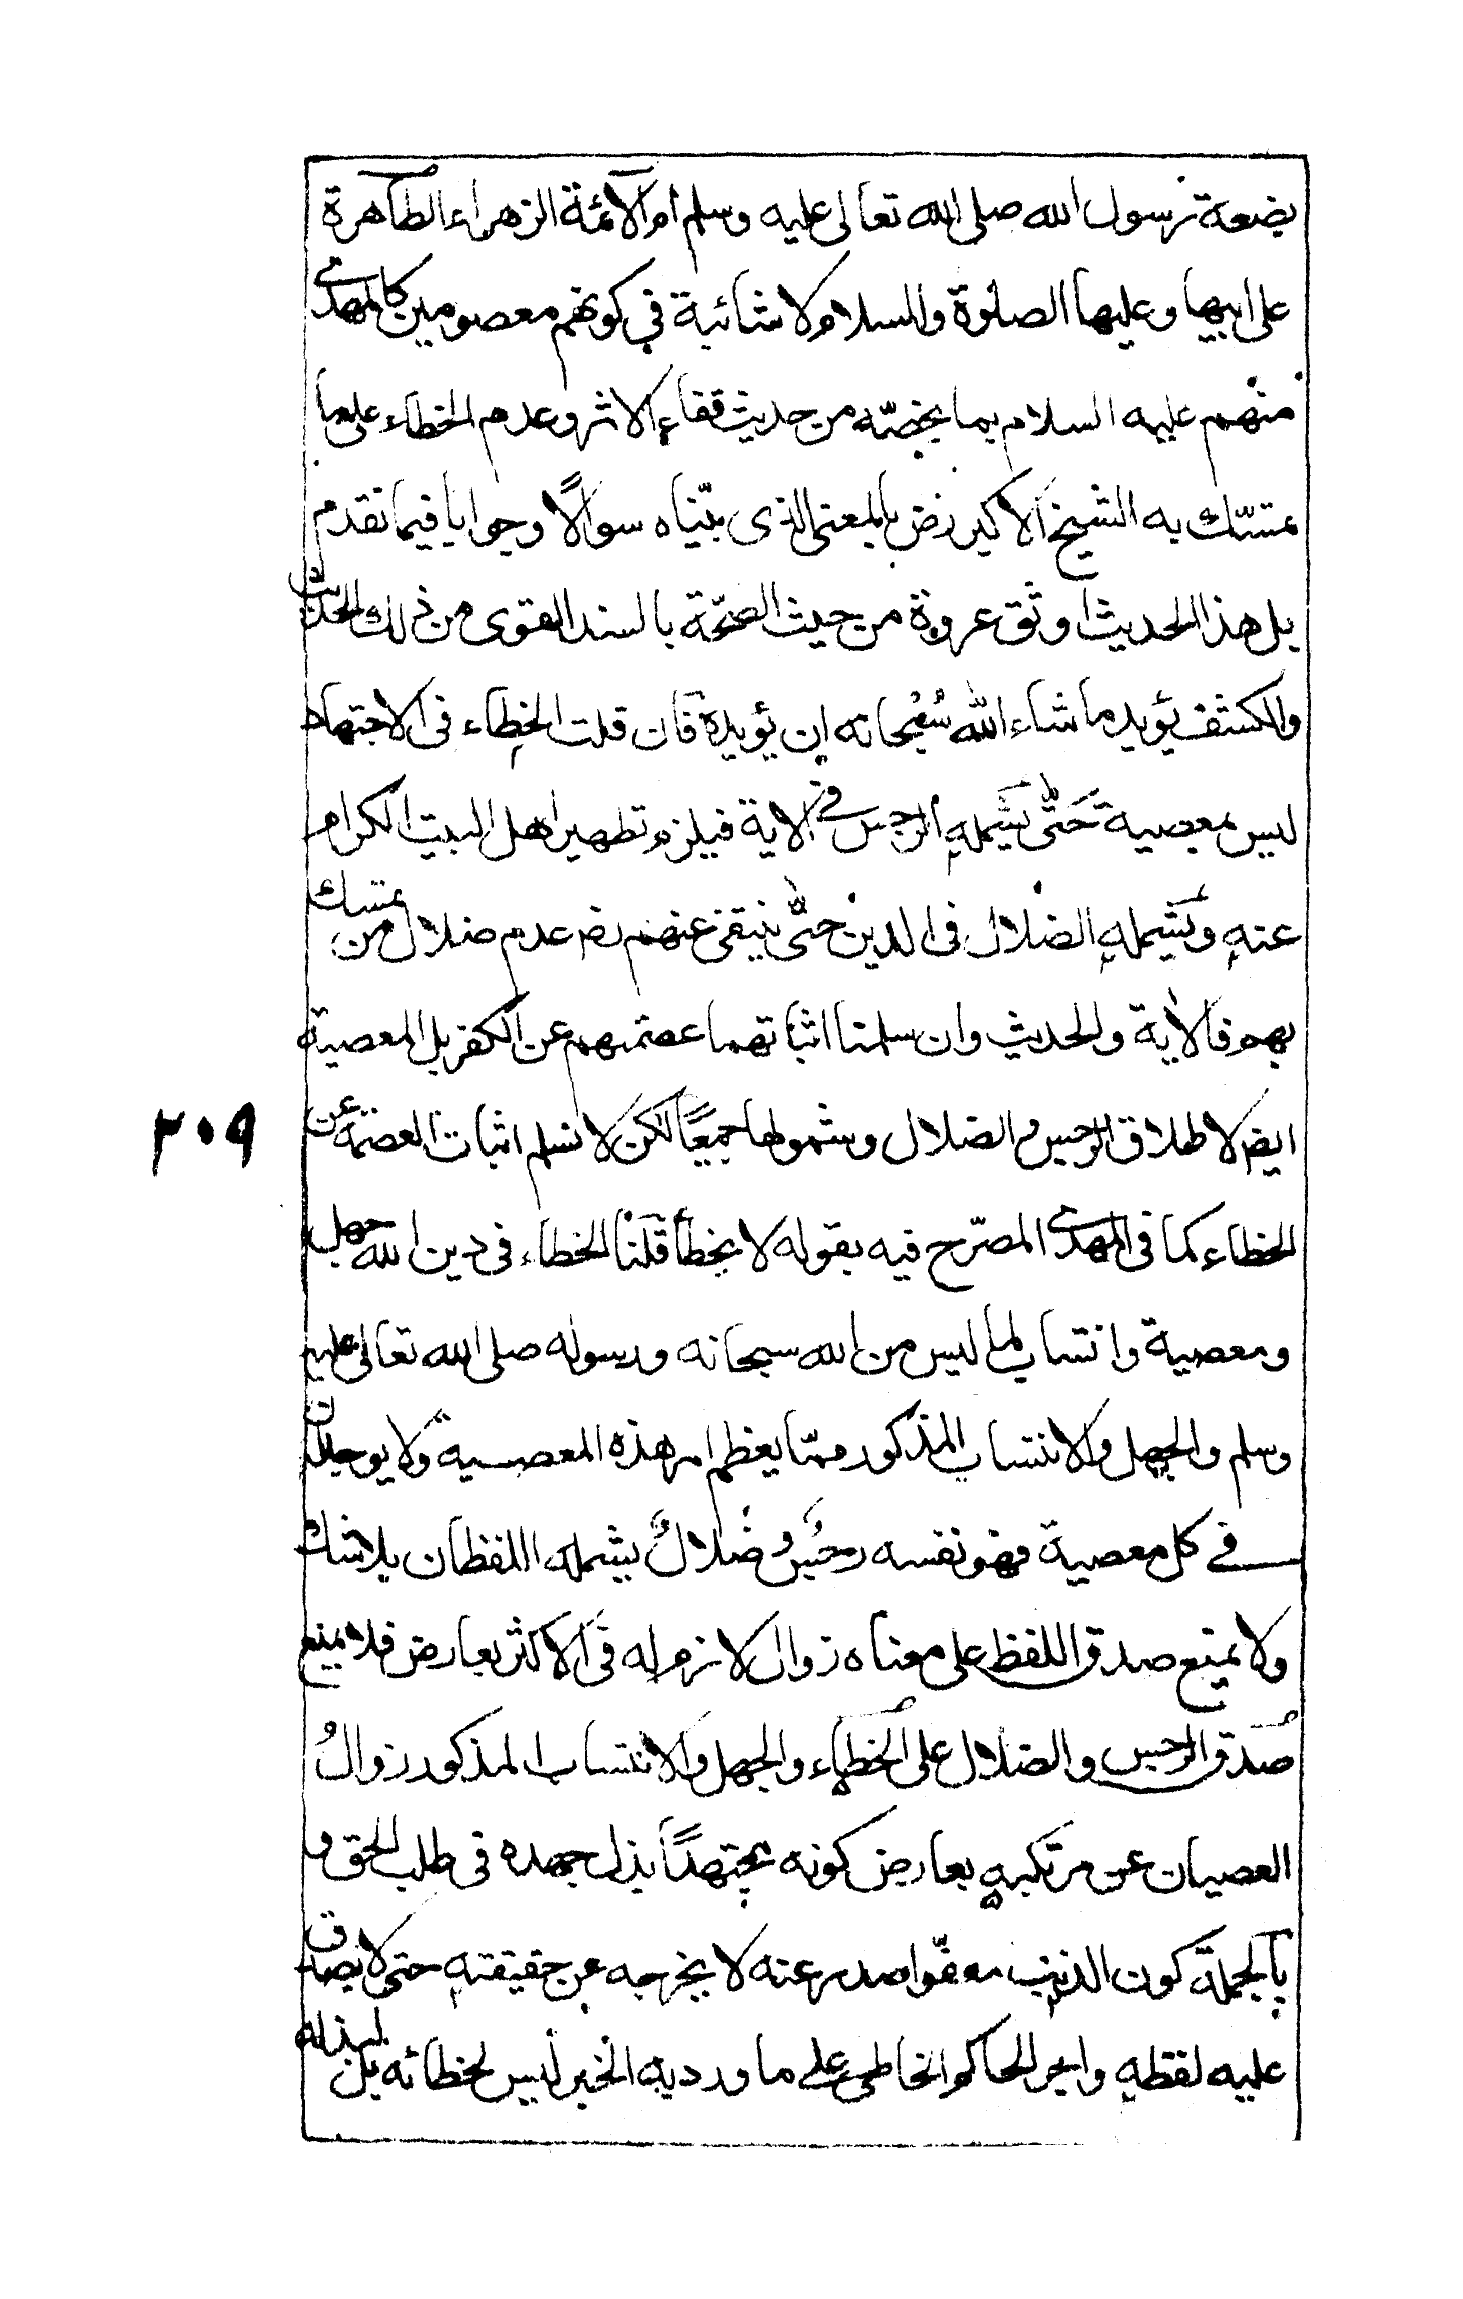 بضعة رسول الله صلى الله تعالى عليه وسلم أم الأئمة الزهراء الطاهرة
على ابيها وعليها الصلوة والسلام لا شائبة في كونهم معصومين كالمهدى
منهم عليه السلام بما يخصّه من حديث قفاء الاثر وعدم الخطاء على ما
تمسّك به الشيخ الاكبر رض بالمعنى الذى بيّناه سوالاً وجوابا فيما تقدم
بل هذا الحديث اوثق عروة من حيث الصحّة بالسند القوى من ذلك الحديث
والكشف يؤيد ما شاء الله سُبْحانه ان يؤيده فان قلت الخطاء فى الاجتهاد
ليس بمعصية حَتّٰى يَشمله الرجس فى الاية فيلزم تطهير اهل البيت الكرام
عنه ويشمله الضلال فى الدين حتّٰى ينبقى عنهم بضم عدم ضلال من تمسك
بهم فالأية والحديث وان سلمنا اثباتهما عصمتهم عن الكفر بل المعصية
ايضا لاطلاق الرجس والضلال وشمولها جميعًا لكن لا نسلم اثبات العصمة عن
الخطاء كما فى المهدى المصرّح فيه بقوله لا يخطأ قلنا الخطاء فى دين الله جهل
ومعصية وانتساب لما ليس من الله سبحانه ورسوله صلى الله تعالى عليه
وسلم والجهل والانتساب المذكور ممّا يعظم امر هذه المعصية ولا يوجدان
فى كل معصية فهو نفسه رجسٌ وضلالٌ يشمله اللفظان بلا شك
ولا يمنع صدق اللفظ على معناه زوال لازم له فى الاكثر بعارض فلا يمنع
صدق الرجس والضلال على الخطاء والجهل والانتساب المذكور زوالُ
العصيان عن مرتكبه بعارض كونه مجتهدًا بذل جهده فى طلب الحق و
بالجملة كون الذنب معفّوا صدر عنه لا يخرجه عن حقيقته حتى لا يصدق
عليه لفظه واجر الحاكم الخاطى على ما ورد به الخبر ليس لخطائه بل لبذله
٢٠٩